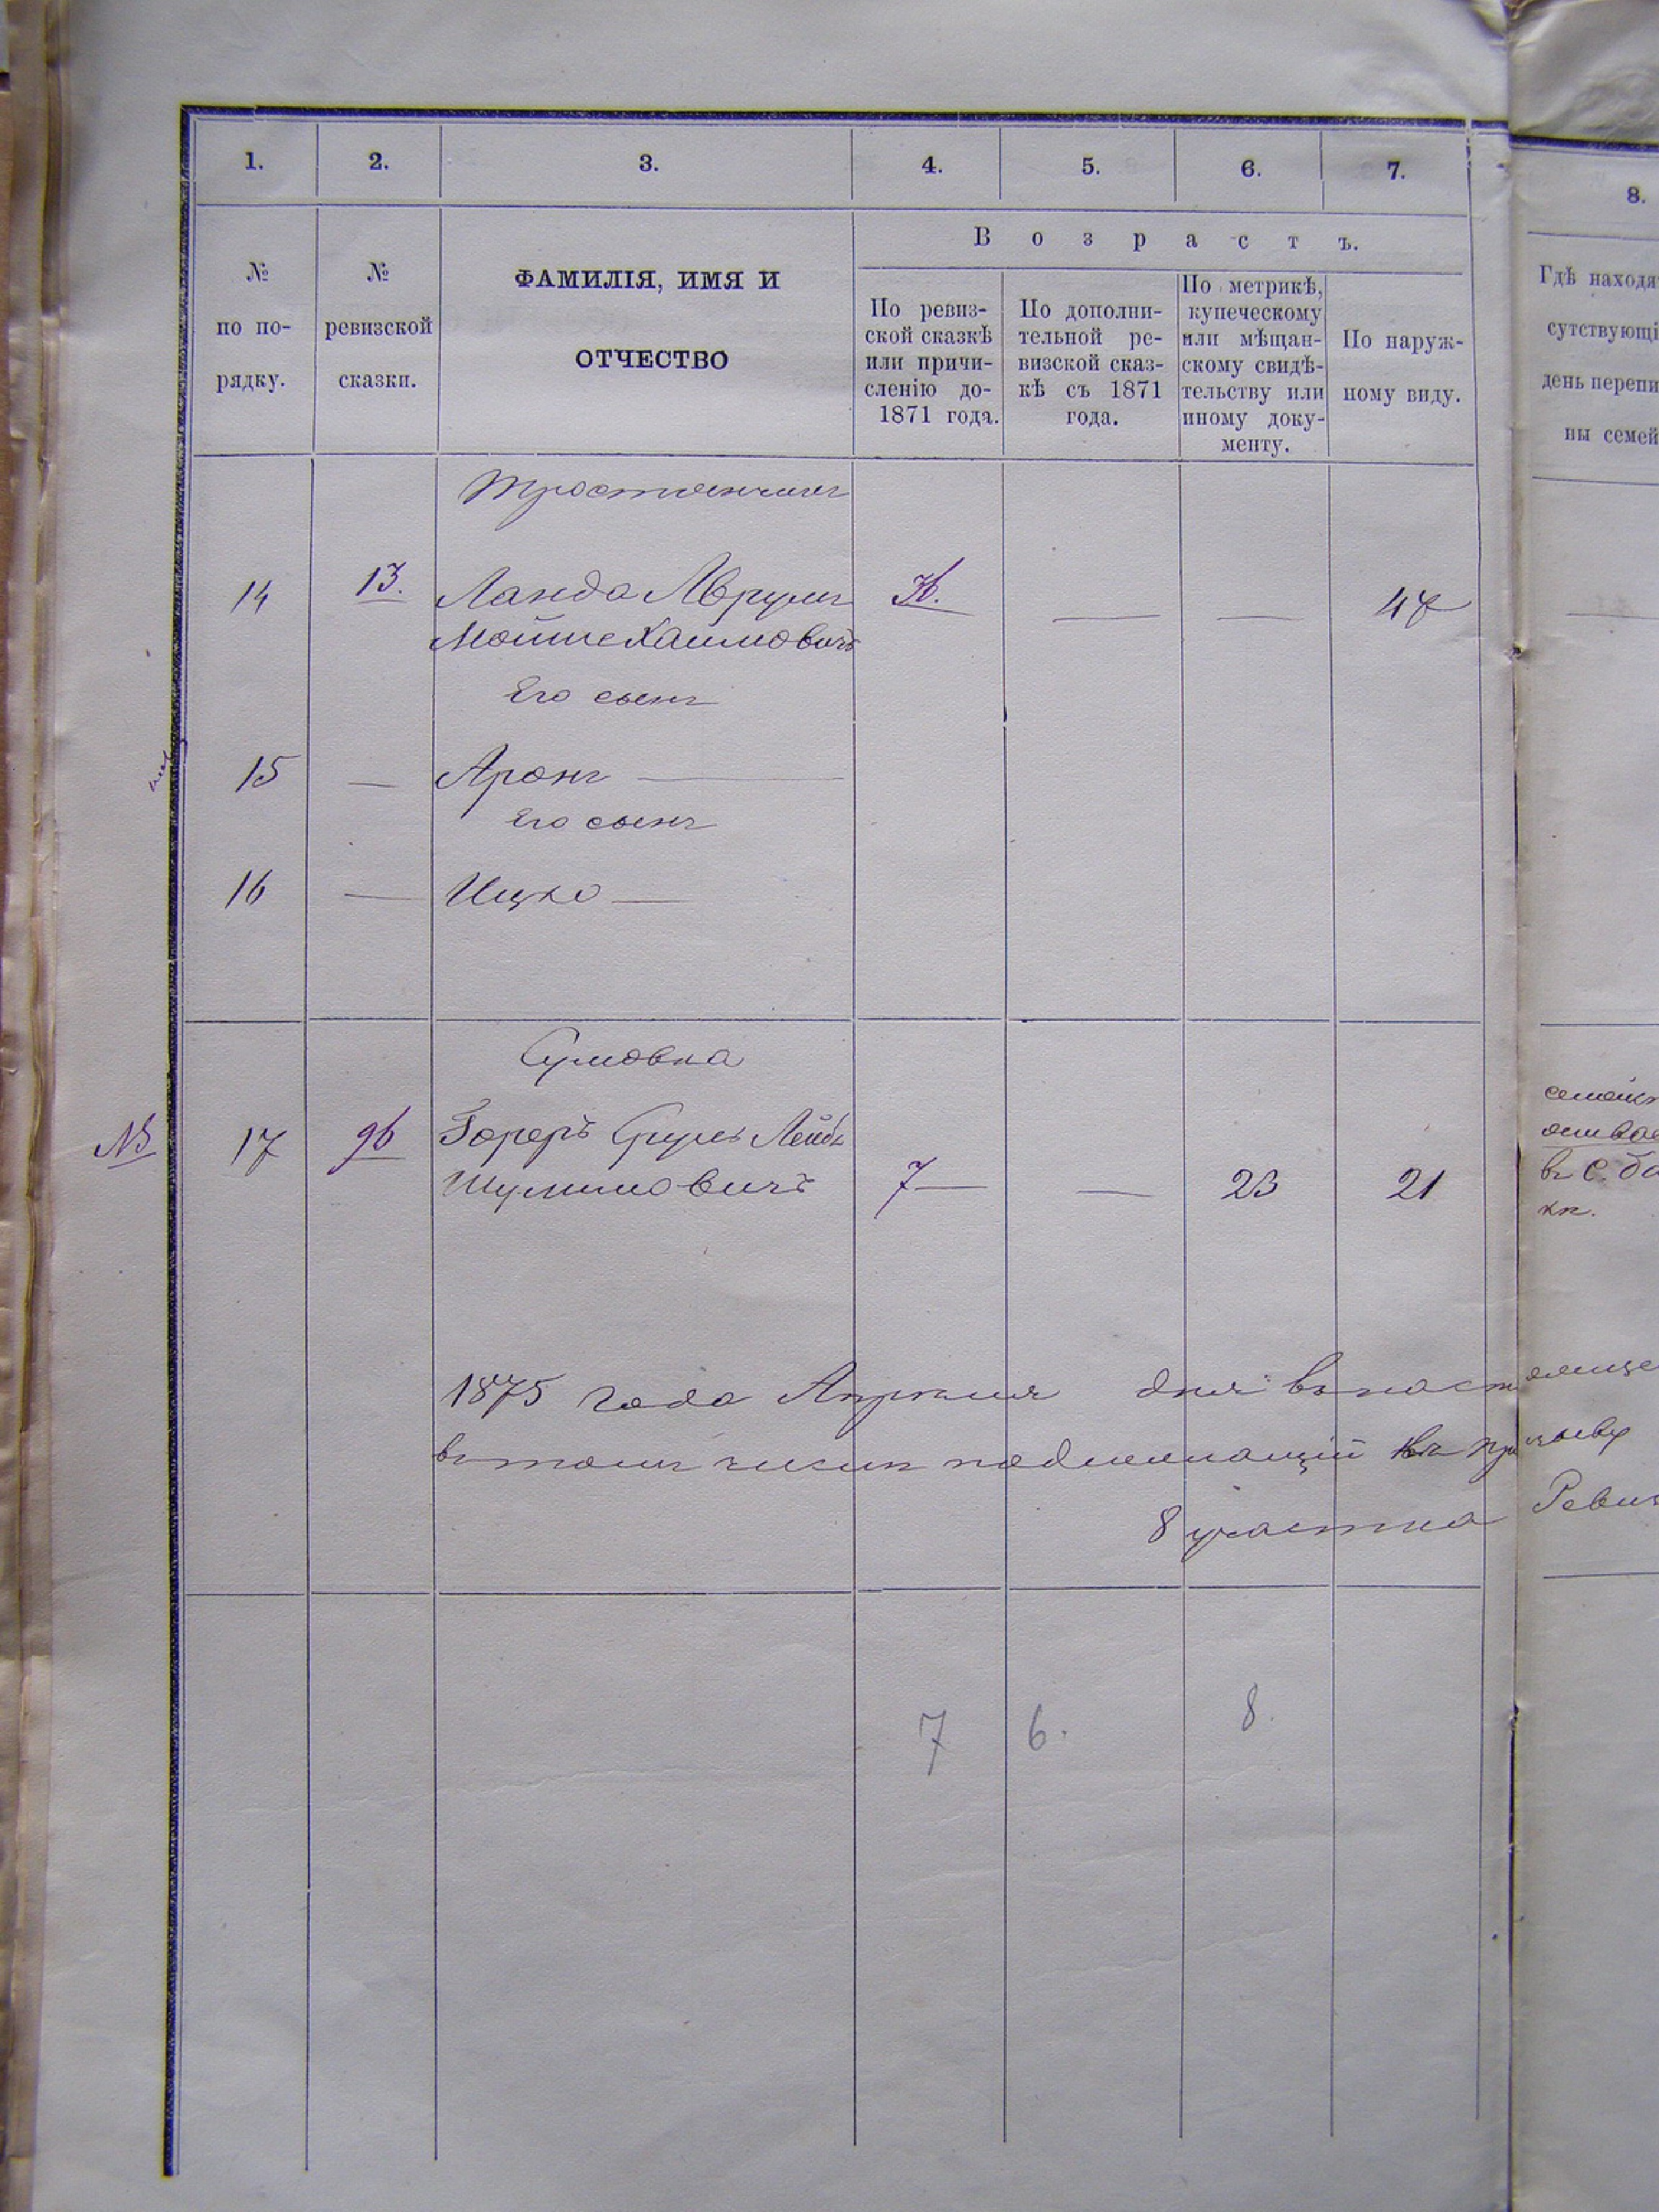 1. 2. 3. 4. 5. 6. 7. 8.
В о з р а с т ъ.
№
по по-
рядку.
№
ревизской
сказки.
ФАМИЛІЯ, ИМЯ И
ОТЧЕСТВО
По ревиз-
ской сказкѣ
или причи-
сленію до-
1871 года.
По дополни-
тельной ре-
визской сказ-
кѣ съ 1871
года.
По метрикѣ,
купеческому
или мѣщан-
скому свидѣ-
тельству или
иному доку-
менту.
По наруж-
ному виду.
Гдѣ находя
сутствующі
день перепи
ны семей
14 13. Ланда Аврумъ — — 47
Мойше Хаимовичъ
Его сынъ
15 — Аронъ —
Его сынъ
16 — Ицко —
Сумовка
NB 17 96 Зореръ Сруль Лейба
Шулимовичъ 7 — — 23 21
въ с. ба
1875 года Апрѣля дня въ настоящее
въ томъ числѣ подлежащій къ призыву
8 участка
7 6. 8.